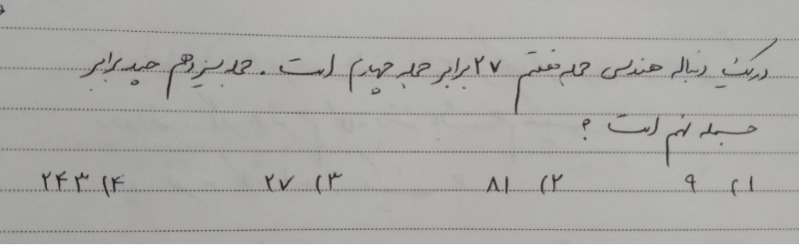 در یک دنباله هندسی جمله هفتم ۲۷ برابر جمله چهارم است . جمله سیزدهم چند برابر
جمله نهم است ؟
۱) ۹ ۲) ۸۱ ۳) ۲۷ ۴) ۲۴۳